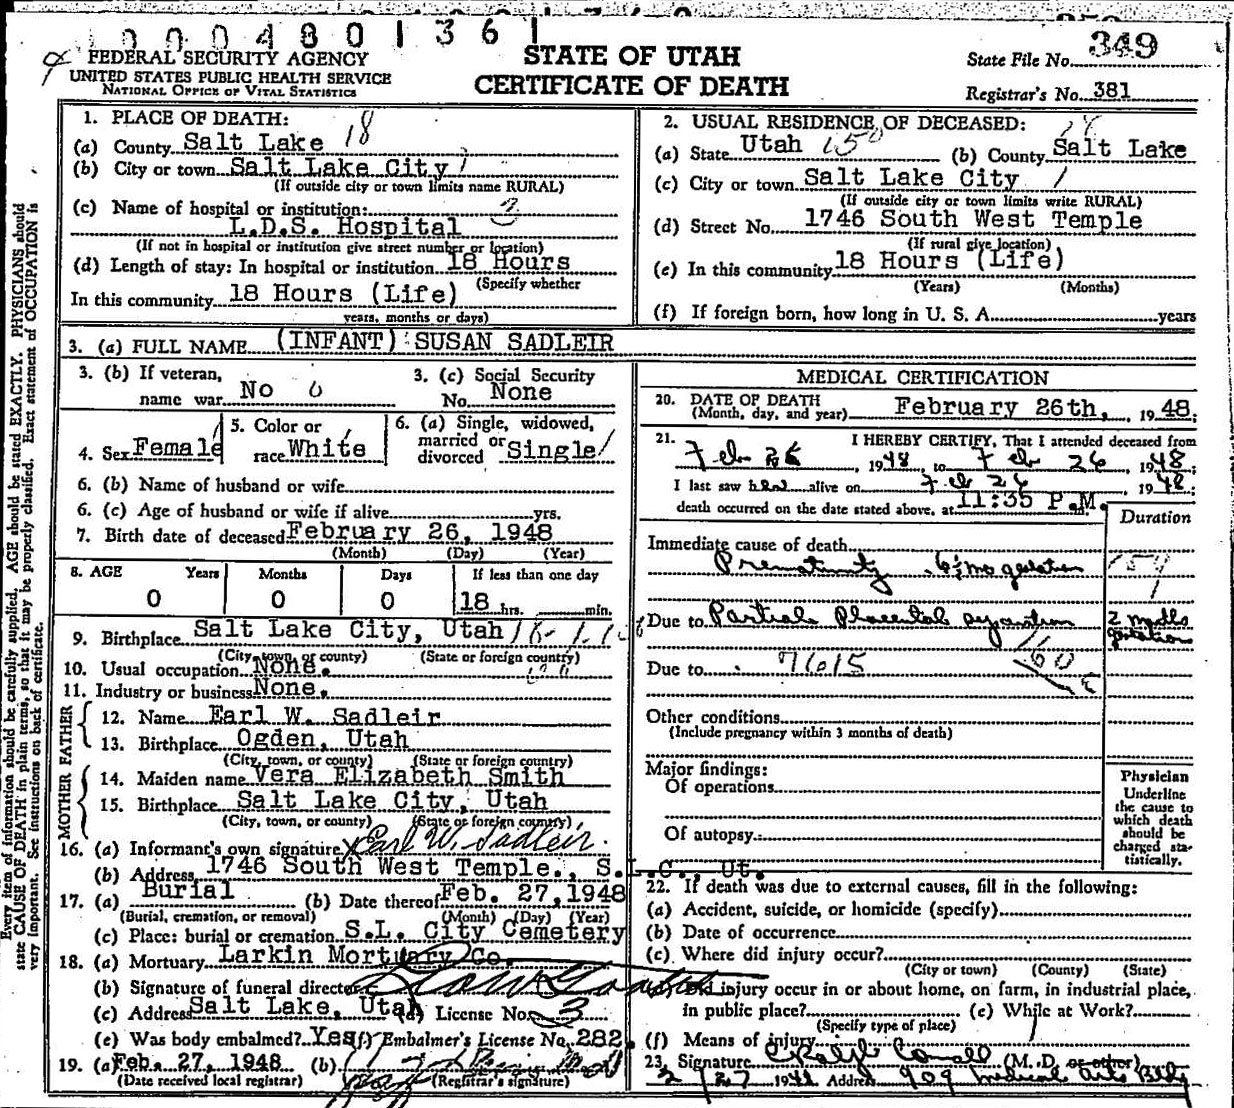 0004801361
FEDERAL SECURITY AGENCY
UNITED STATES PUBLIC HEALTH SERVICE
NATIONAL OFFICE OF VITAL STATISTICS
STATE OF UTAH
CERTIFICATE OF DEATH
State File No. 349
Registrar's No. 381
1. PLACE OF DEATH:
(a) County Salt Lake 18
(b) City or town Salt Lake City 1
(If outside city or town limits name RURAL)
(c) Name of hospital or institution:
L.D.S. Hospital
(If not in hospital or institution give street number or location)
(d) Length of stay: In hospital or institution 18 Hours
(Specify whether
In this community 18 Hours (Life)
years, months or days)
2. USUAL RESIDENCE OF DECEASED:
(a) State Utah 150 (b) County Salt Lake
(c) City or town Salt Lake City 1
(If outside city or town limits write RURAL)
(d) Street No. 1746 South West Temple
(If rural give location)
(e) In this community 18 Hours (Life)
(Years) (Months)
(f) If foreign born, how long in U. S. A. years
3. (a) FULL NAME (INFANT) SUSAN SADLEIR
3. (b) If veteran,
name war No 0
3. (c) Social Security
No. None
4. Sex Female
5. Color or
race White
6. (a) Single, widowed,
married or
divorced Single
6. (b) Name of husband or wife
6. (c) Age of husband or wife if alive yrs.
7. Birth date of deceased February 26, 1948
(Month) (Day) (Year)
8. AGE Years Months Days If less than one day
0 0 0 18 hrs. min.
9. Birthplace Salt Lake City, Utah
(City, town, or county) (State or foreign country)
10. Usual occupation None.
11. Industry or business None.
FATHER
12. Name Earl W. Sadleir
13. Birthplace Ogden, Utah
(City, town, or county) (State or foreign country)
MOTHER
14. Maiden name Vera Elizabeth Smith
15. Birthplace Salt Lake City, Utah
(City, town, or county) (State or foreign country)
16. (a) Informant's own signature Earl W. Sadleir
(b) Address 1746 South West Temple., S.L.C., Ut.
17. (a) Burial (b) Date thereof Feb. 27, 1948
(Burial, cremation, or removal) (Month) (Day) (Year)
(c) Place: burial or cremation S.L. City Cemetery
18. (a) Mortuary Larkin Mortuary Co.
(b) Signature of funeral director
(c) Address Salt Lake, Utah (d) License No. 3
(e) Was body embalmed? Yes (f) Embalmer's License No. 282.
19. (a) Feb. 27, 1948 (b)
(Date received local registrar) (Registrar's signature)
MEDICAL CERTIFICATION
20. DATE OF DEATH
(Month, day, and year) February 26th, 1948;
21. I HEREBY CERTIFY, That I attended deceased from
Feb 26, 1948, to Feb 26, 1948
I last saw her alive on Feb 26 1948;
death occurred on the date stated above, at 11:35 P.M.
Duration
Immediate cause of death
Prematurity 6½ mo gestation
Due to Partial Placental separation
Due to 7615
160
Other conditions
(Include pregnancy within 3 months of death)
Major findings:
Of operations
Of autopsy
Physician
Underline
the cause to
which death
should be
charged sta-
tistically.
22. If death was due to external causes, fill in the following:
(a) Accident, suicide, or homicide (specify)
(b) Date of occurrence
(c) Where did injury occur?
(City or town) (County) (State)
(d) Did injury occur in or about home, on farm, in industrial place,
in public place? (e) While at Work?
(Specify type of place)
(f) Means of injury
23. Signature (M. D. or other)
2/27 1948 Address 909 Medical Arts Bldg
Every item of information should be carefully supplied. AGE should be stated EXACTLY. PHYSICIANS should
state CAUSE OF DEATH in plain terms, so that it may be properly classified. Exact statement of OCCUPATION is
very important. See instructions on back of certificate.